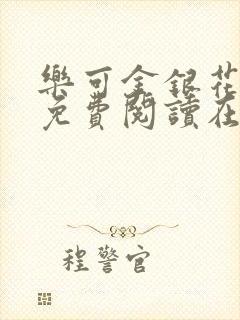 樂可金銀花
免費閱讀在
程警官